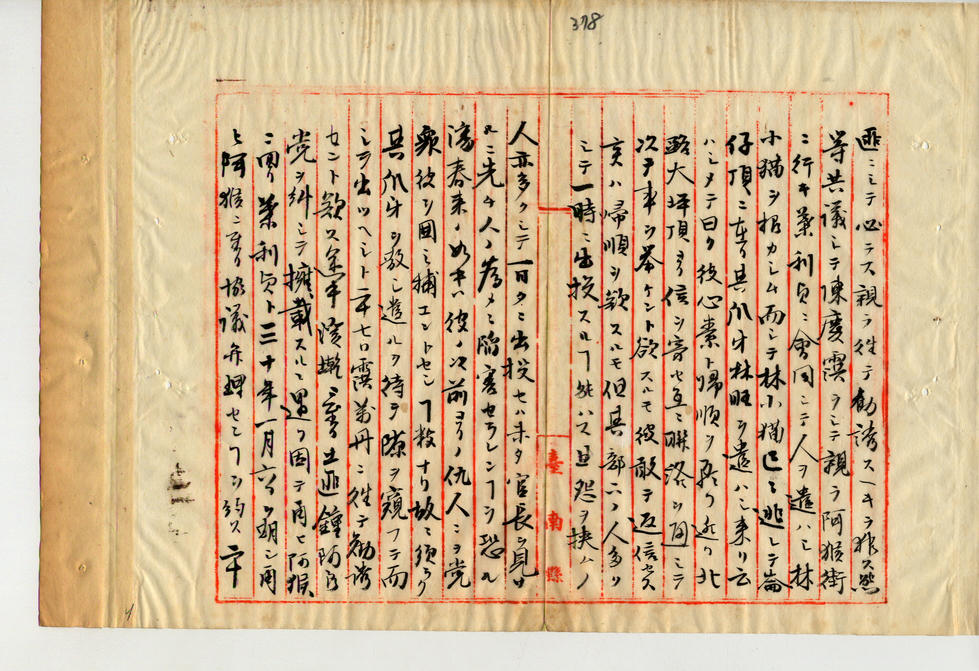 378
匪ニシテ必テス親ラ往テ勧誘スヘキヲ推ス然
等共議シテ陳慶霙ヲシテ親ラ阿猴街
ニ行キ葉利貞ニ會同シテ人ヲ遣ハシ林
小猫ヲ招カシム而シテ林小猫已ニ逃レテ崙
仔頂ニ在リ其爪牙林旺ヲ遣ハシ来リ云
ハシメテ曰ク彼心素ト帰順ヲ願ク近ク北
路大坪頂ヨリ信ヲ寄セ互ニ聯洛ヲ通シテ
次テ事ヲ挙ケント欲スルモ彼敢テ返信セス
実ハ帰順ヲ欲スルモ但其部下ノ人多ク
シテ一時ニ出投スルヿ能ハス且怨ヲ挟ムノ
人亦多クシテ一日タニ出投セハ未タ官長ヲ見サ
ルニ先チ人ノ為メニ陥害セラレンヿヲ恐ル
潘春来ノ如キハ彼ノ以前ヨリノ仇人ニシテ党
衆彼ヲ囲ミ捕エントセシヿ数十リ故ニ須ラク
其爪牙ヲ放シ遣ルヲ待テ隙ヲ窺フテ而
シテ出ツヘシト二十七日霙萬丹ニ往テ勧誘
セント欲ス途中ニ至リ土匪鐘阿
党ヲ糾シテ擁載スルニ遇フ因テ再ヒ阿猴
ニ回リ葉利貞ト三十年一月六日ヲ期シ再
ヒ阿猴ニ至リ協議弁理セシヿヲ約ス二十
臺南縣